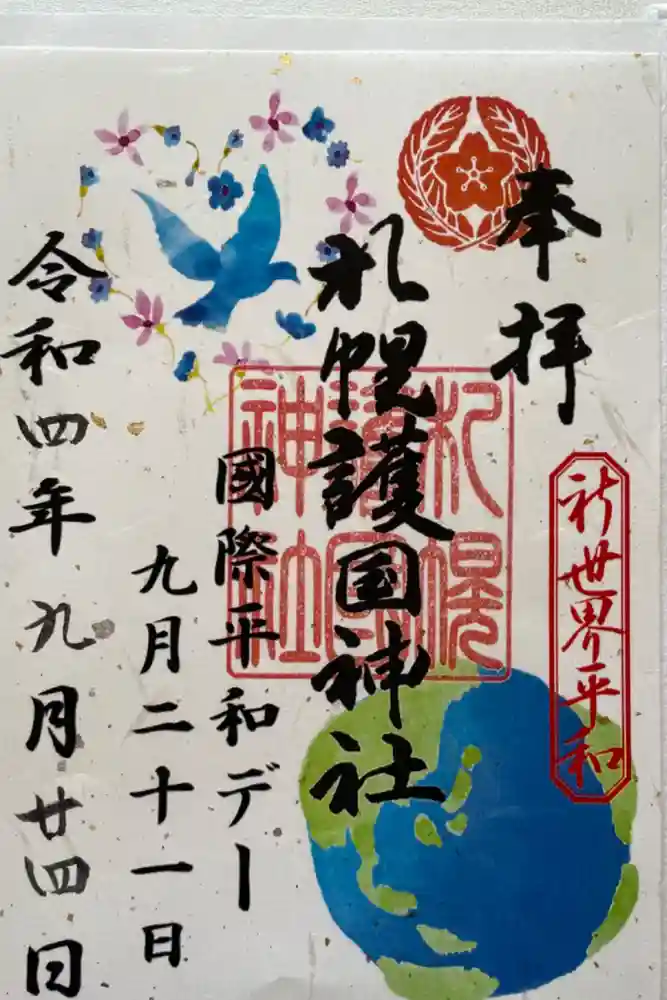 奉拝
祈世界平和
札幌護国神社
札幌
神社
國際平和デー
九月二十一日
令和四年九月廿四日